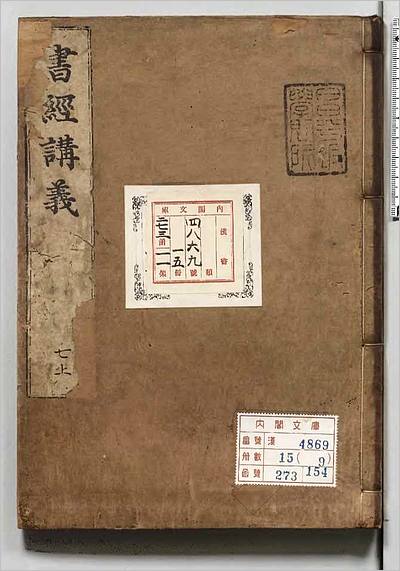 書經講義
七止
内閣文庫
漢書類
四八六九號
一五冊
二七三函
一一架
内閣文庫
番號 漢 4869
冊數 15(9)
函號 273 154